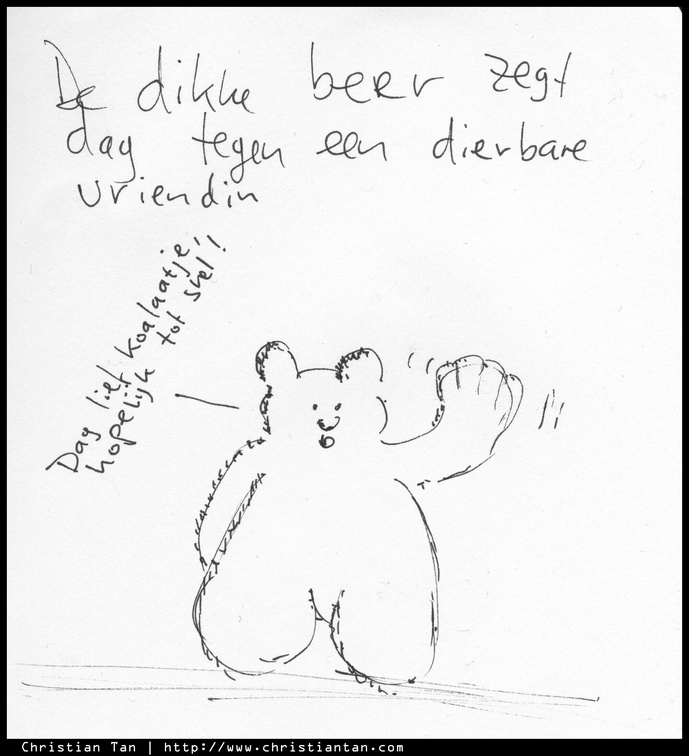 De dikke beer zegt
dag tegen een dierbare
vriendin
Dag lief koalaatje,
hopelijk tot snel!
Christian Tan | http://www.christiantan.com